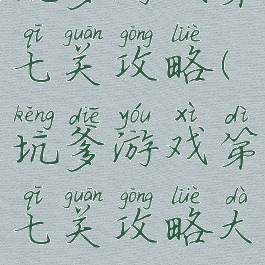 qī guān gōng lüè
七关攻略(
kēng diē yóu xì dì
坑爹游戏第
qī guān gōng lüè dà
七关攻略大